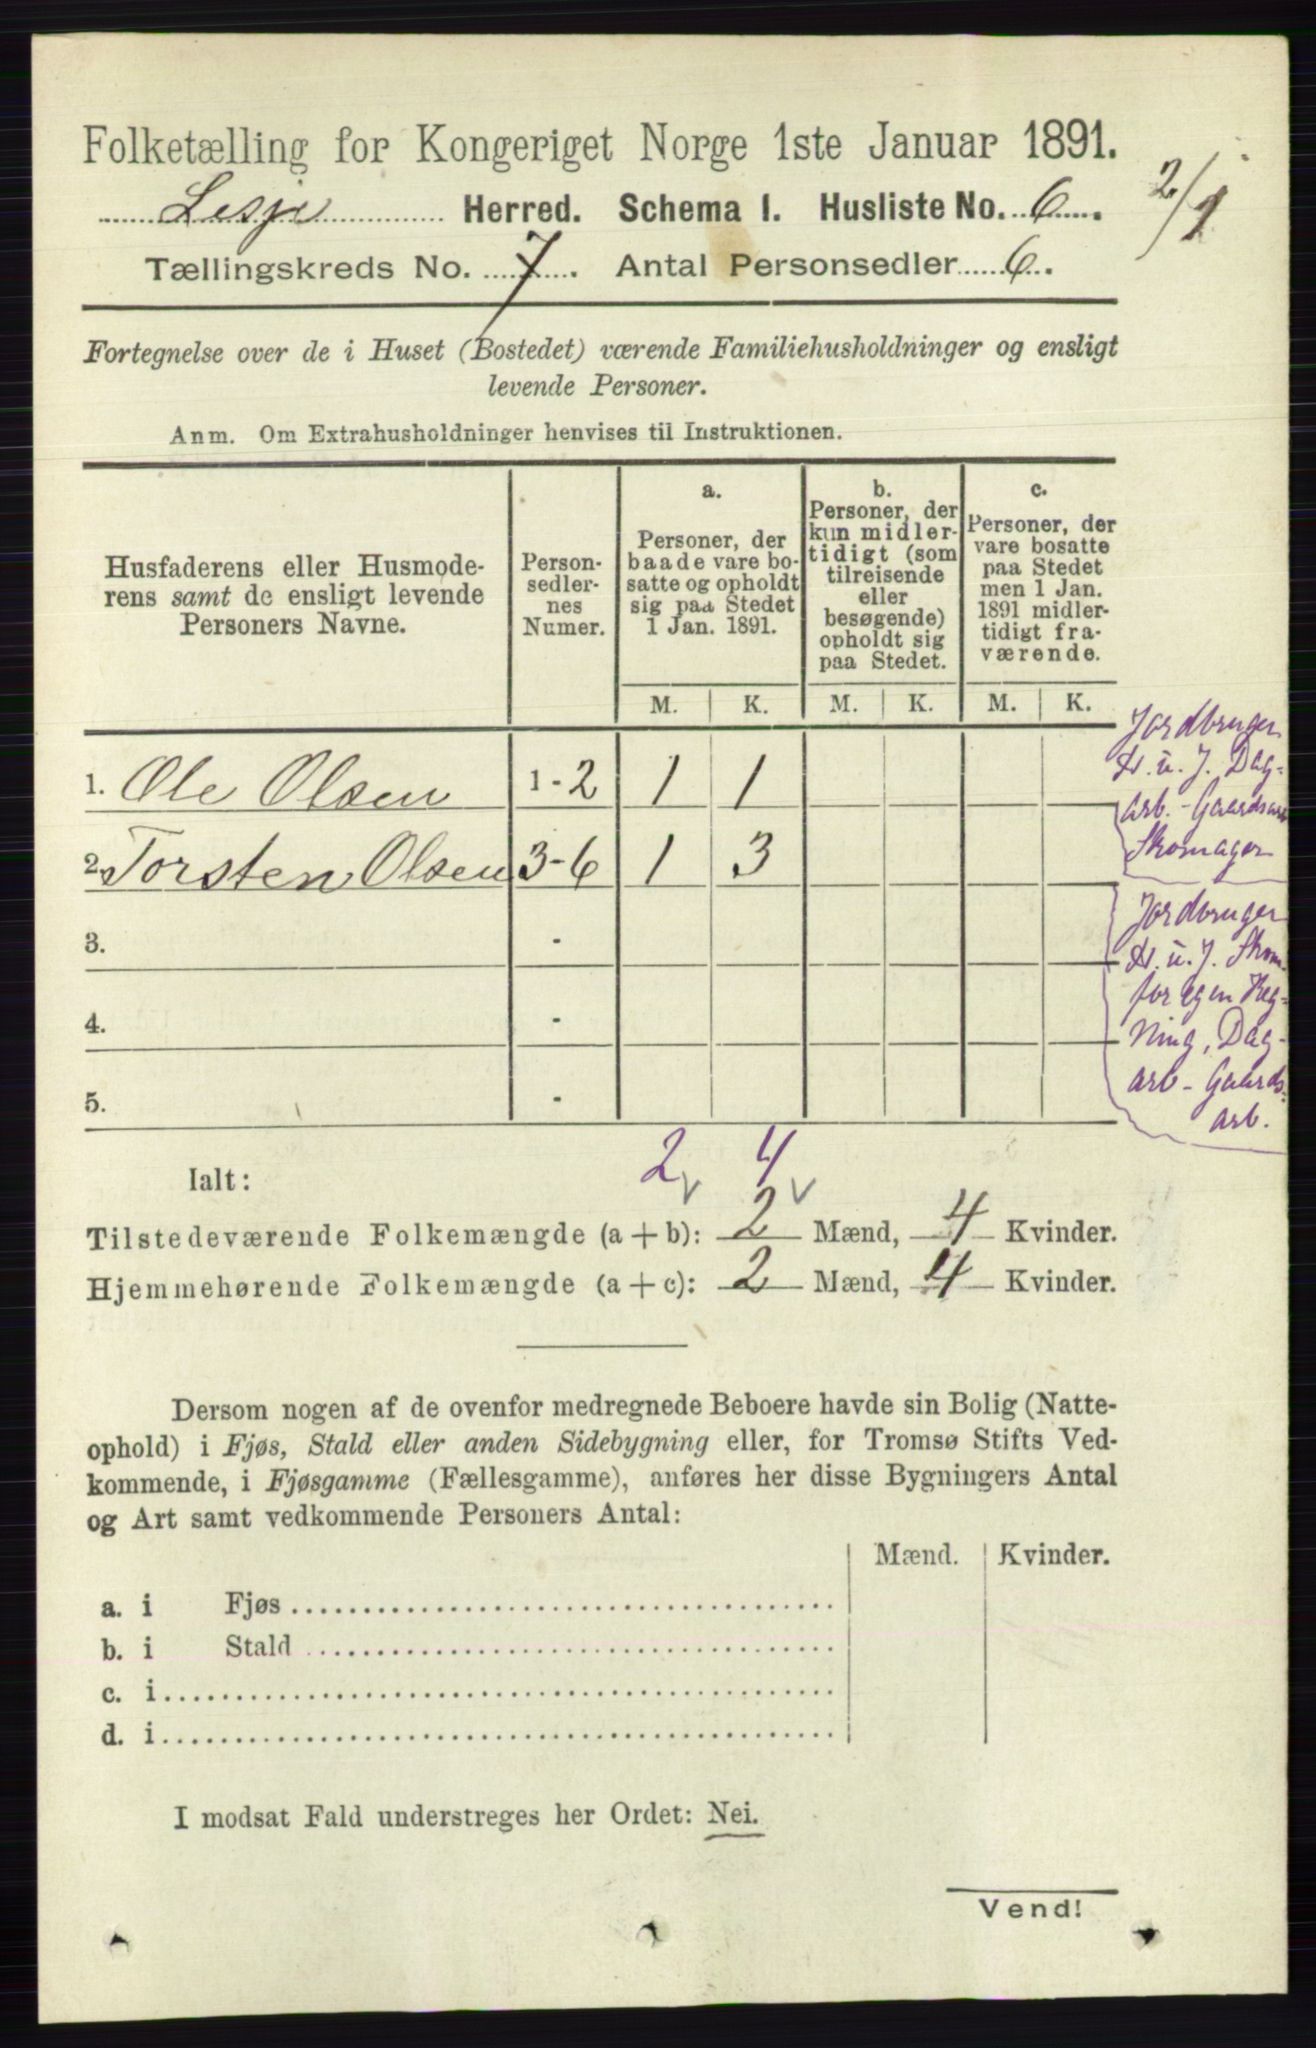 Folketælling for Kongeriget Norge 1ste Januar 1891.
Lesje Herred. Schema I. Husliste No. 6.
2/1
Tællingskreds No. 7. Antal Personsedler 6.
Fortegnelse over de i Huset (Bostedet) værende Familiehusholdninger og ensligt
levende Personer.
Anm. Om Extrahusholdninger henvises til Instruktionen.
Husfaderens eller Husmode-
rens samt de ensligt levende
Personers Navne.
Person-
sedler-
nes
Numer.
a.
Personer, der
baade vare bo-
satte og opholdt
sig paa Stedet
1 Jan. 1891.
b.
Personer, der
kun midler-
tidigt (som
tilreisende
eller
besøgende)
opholdt sig
paa Stedet.
c.
Personer, der
vare bosatte
paa Stedet
men 1 Jan.
1891 midler-
tidigt fra-
værende.
M. K. M. K. M. K.
1. Ole Olsen 1-2 1 1
2. Torsten Olsen 3-6 1 3
3. -
4. -
5. -
Jordbruger
d. u. J. Dag-
arb. - Gaardsarb
Skomager
Jordbruger
d. u. J. Skom.
for egen Reg-
ning, Dag-
arb - Gaards-
arb.
2 4
Ialt:
Tilstedeværende Folkemængde (a + b): 2 Mænd, 4 Kvinder.
Hjemmehørende Folkemængde (a + c): 2 Mænd, 4 Kvinder.
Dersom nogen af de ovenfor medregnede Beboere havde sin Bolig (Natte-
ophold) i Fjøs, Stald eller anden Sidebygning eller, for Tromsø Stifts Ved-
kommende, i Fjøsgamme (Fællesgamme), anføres her disse Bygningers Antal
og Art samt vedkommende Personers Antal:
Mænd. Kvinder.
a. i Fjøs
b. i Stald
c. i
d. i
I modsat Fald understreges her Ordet: Nei.
Vend!